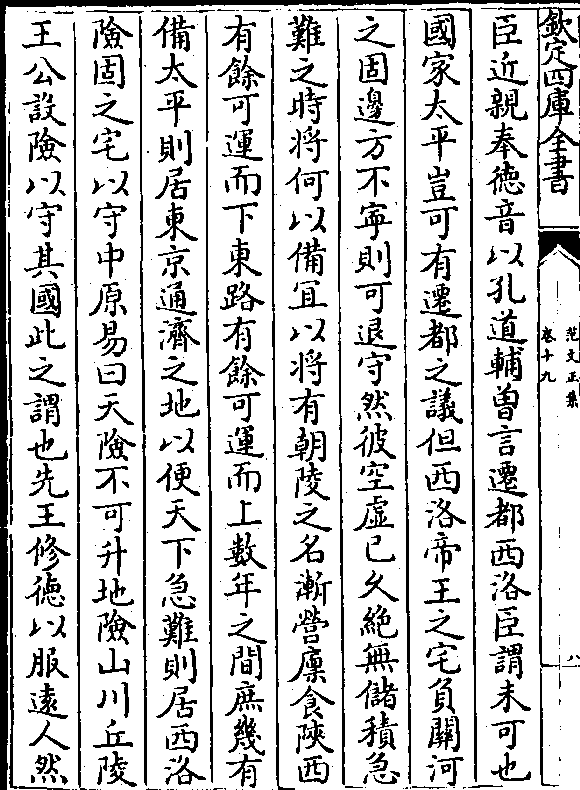 欽定四庫全書
范文正集
卷十九
八
臣近親奉德音以孔道輔曽言遷都西洛臣謂未可也
國家太平豈可有遷都之議但西洛帝王之宅負關河
之固邊方不寧則可退守然彼空虛已久絶無儲積急
難之時将何以備宜以将有朝陵之名漸營廩食陜西
有餘可運而下東路有餘可運而上數年之間庶幾有
備太平則居東京通濟之地以便天下急難則居西洛
險固之宅以守中原易曰天險不可升地險山川丘陵
王公設險以守其國此之謂也先王修德以服逺人然